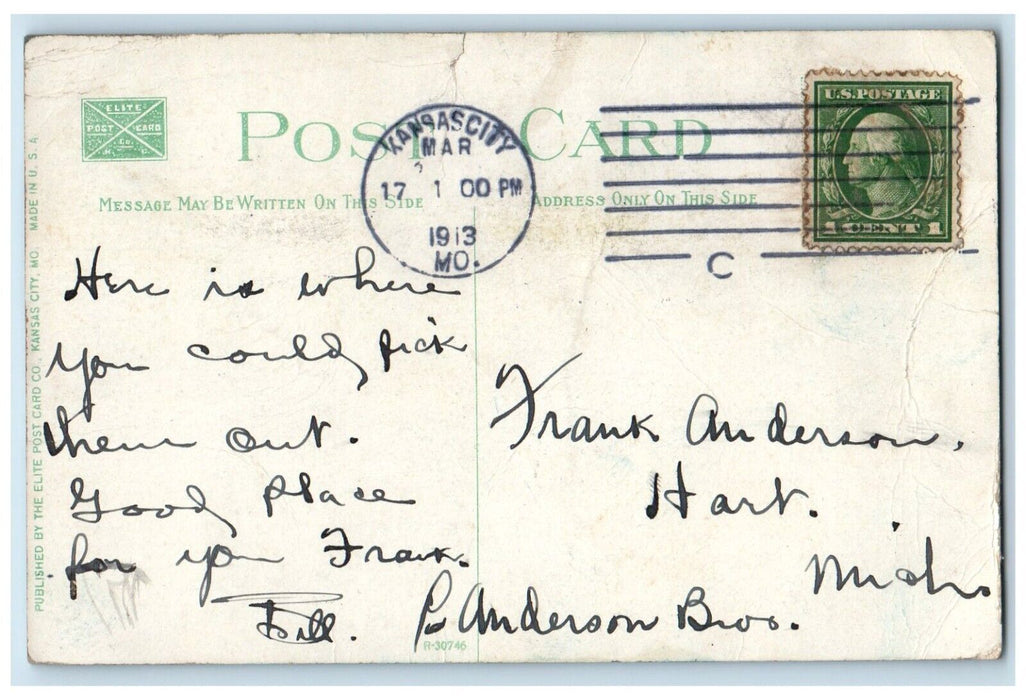 ELITE
POST CARD
Co.
K. C.
POST CARD
MESSAGE MAY BE WRITTEN ON THIS SIDE
ADDRESS ONLY ON THIS SIDE
KANSAS CITY
MAR
17 1 00 PM
1913
MO.
C
U.S. POSTAGE
1 CENT 1
PUBLISHED BY THE ELITE POST CARD CO., KANSAS CITY, MO. MADE IN U. S. A
Here is where
you could pick
them out.
Good place
for you Frank.
Bill.
Frank Anderson,
Hart.
Mich.
Anderson Bros.
R-30746